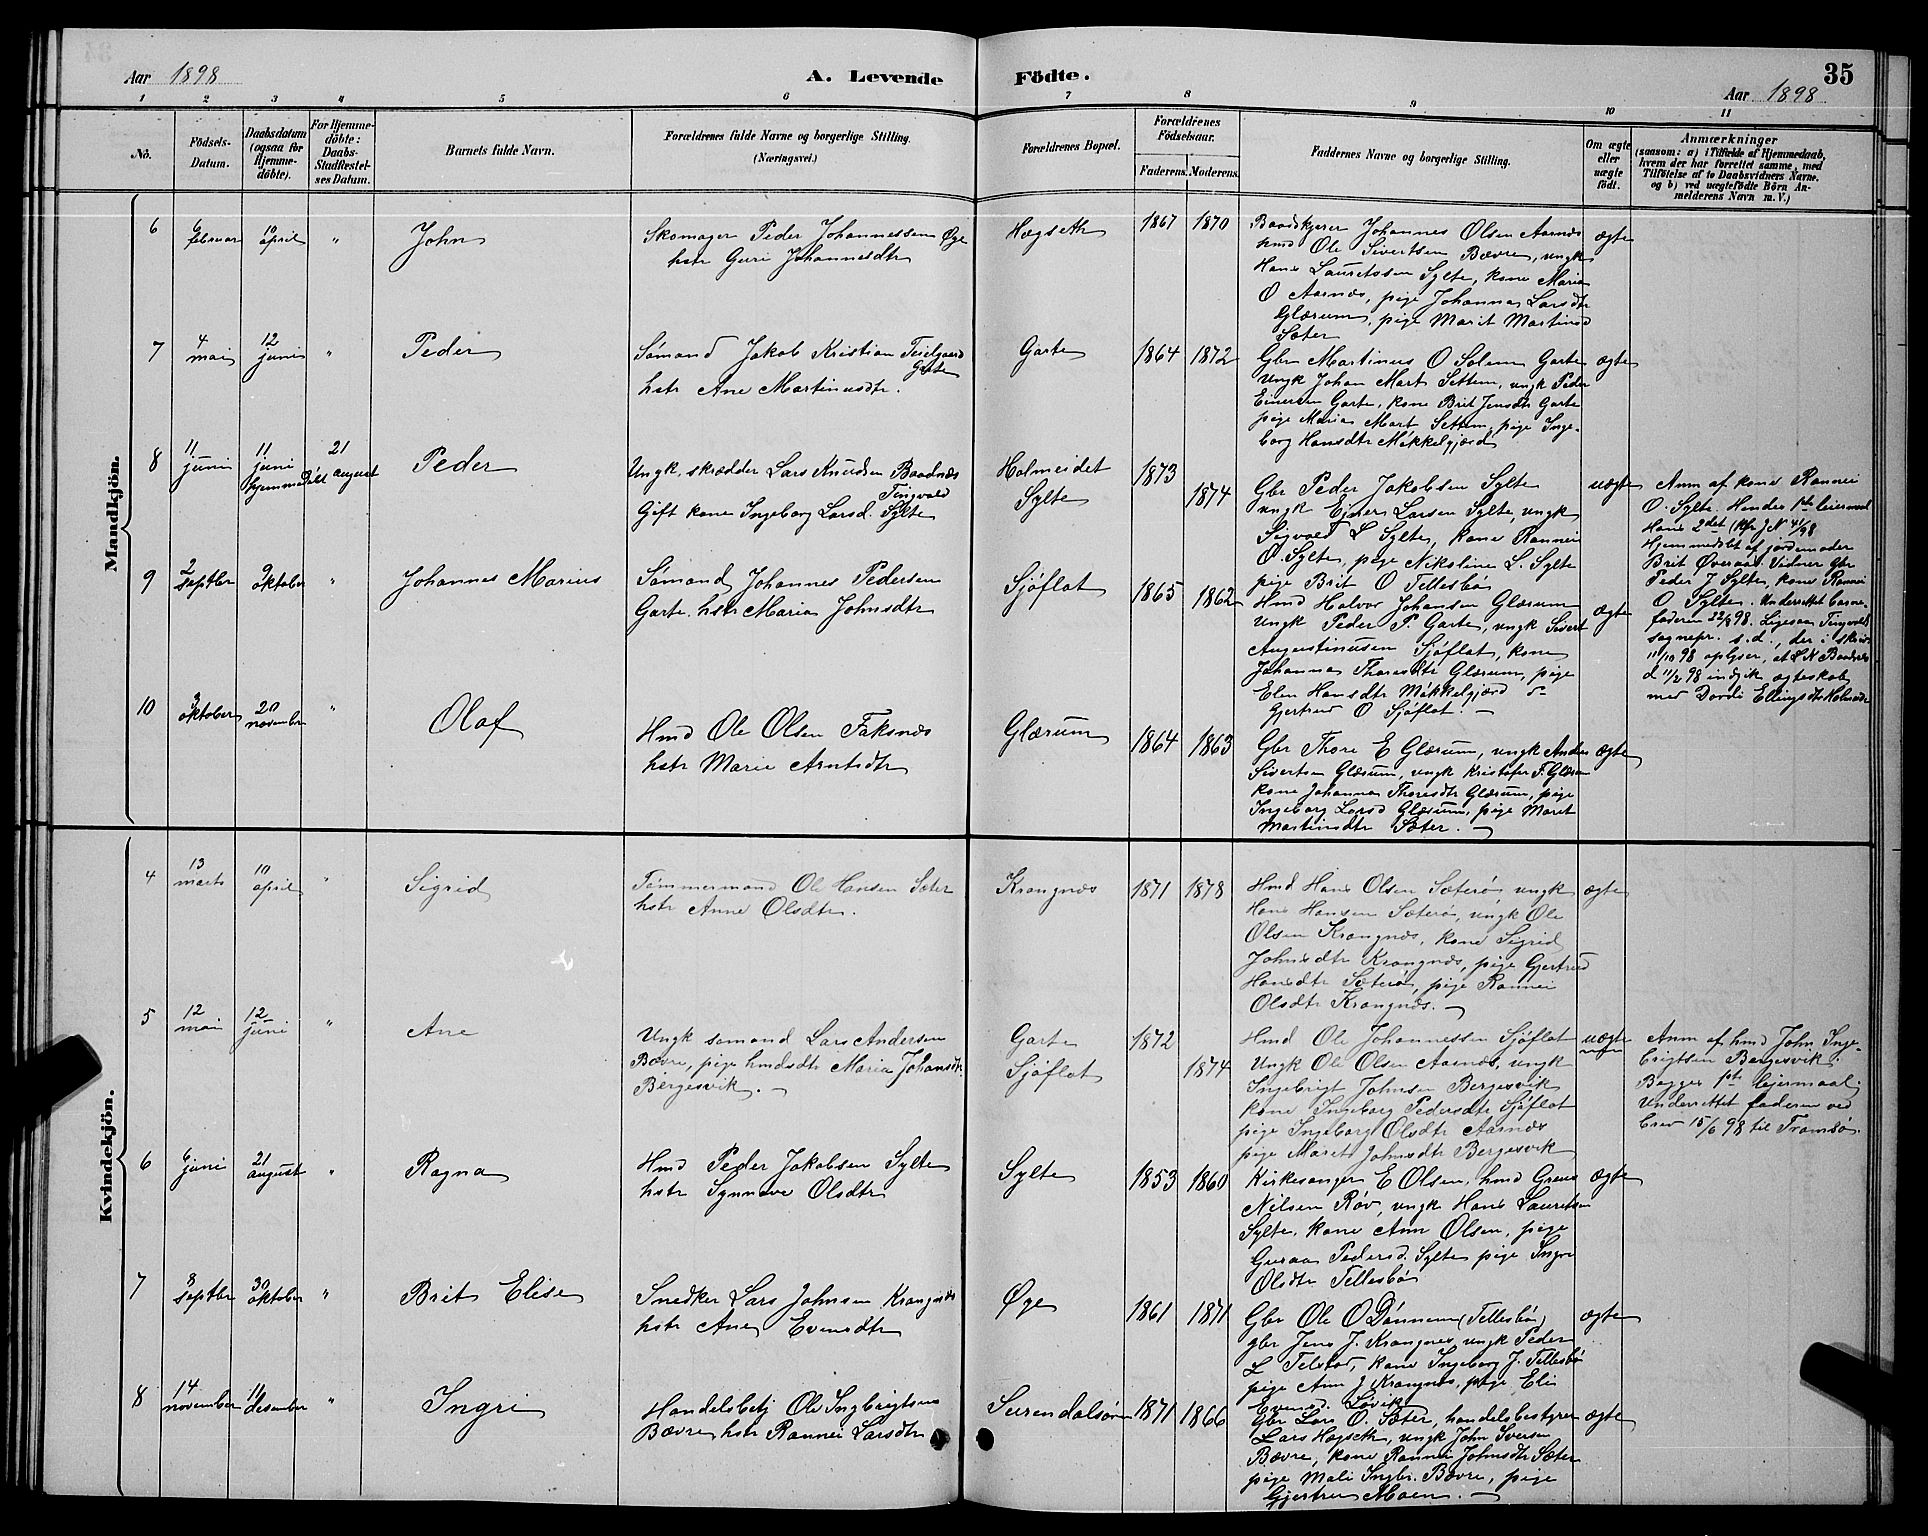 Aar 1898
A. Levende
Födte.
35
Aar 1898
1 2 3 4 5 6 7 8 9 10 11
No.
Födsels-
Datum.
Daabsdatum
(ogsaa for
Hjemme-
döbte).
For Hjemme-
döbte:
Daabs-
Stadfæstel-
ses Datum.
Barnets fulde Navn.
Forældrenes fulde Navne og borgerlige Stilling.
(Næringsvei.)
Forældrenes Bopæl.
Forældrenes
Födselsaar.
Faderens.
Moderens.
Faddernes Navne og borgerlige Stilling.
Om ægte
eller
uægte
födt.
Anmærkninger
(saasom: a) i Tilfælde af Hjemmedaab,
hvem der har forrettet samme, med
Tilföielse af to Daabsvidners Navne.
og b) ved uægtefödte Börn An-
melderens Navn m. V.)
Mandkjön.
6
6 februar
10 april
"
John
Skomager Peder Johannessen Øye
hstr Guri Johannesdtr
Hægseth
1867
1870
Baadskjører Johannes Olsen Aarnes
hmd Ole Sivertsen Bævre, ungk
Hans Lauretssen Sylte, kone Maria
O Aarnæs, pige Johanna Larsdtr
Glærum, pige Marit Martinsd
Sæter
ægte
7
4 mai
12 juni
"
Peder
Sömand Jakob Kristian
Garte
hstr Ane Martinusdtr.
Garte
1864
1872
Gbr Martinus O Solem Garte
Ungk Johan Mart Settem, ungk Peder
Einersen Garte, kone Brit Jensdtr Garte
pige Maria Mart Settem, pige Inge-
borg Hansdtr Mökkelgjerd
ægte
8
11 juni
11 juni
hjemmedöbt
21 august
Peder
Ungk. skrædder Lars Knudsen Baadnæs
Tingvold
Gift kone Ingeborg Larsd. Sylte
Holmeidet
Sylte
1873
1874
Gbr Peder Jakobsen Sylte
ungk Ejner Larsen Sylte, ungk
Sigvald L Sylte, kone Rannei
O. Sylte, pige Nikoline L. Sylte
pige Brit O Tellesbø
uægte
Anm af kone Rannei
O. Sylte. Hendes 1ste leiermaal
Hans 2det (Kfr J N 41/98
Hjemmedöbt af jordemoder
Brit Øveraas. Vidner Gbr
Peder J Sylte, kone Rannei
O Sylte. Underrettet barne-
faderen 22/8 98. Ligesaa Tingvold
sognepr. s.d., der i skriv
11/10 98 oplyser, at L N Baadnes
d 11/2 98 indgik ægteskab
med Dordi Ellingsdtr Holmeide
9
2 septbr
9 oktober
"
Johannes Marius
Sömand Johannes Pedersen
Garte. hstr Maria Johnsdtr
Sjöflot
1865
1862
Hmd Halvor Johansen Glærum
Ungk Peder P. Garte, ungk Sivert
Augustinusen Sjöflot, kone
Johanna Thoresdtr Glærum, pige
Elen Hansdtr Mökkelgjerd
Gjertrud O Sjöflot. —
ægte
10
3 oktober
20 november
"
Olaf
Hmd Ole Olsen Faksnæs
hstr Marie Arntsdtr
Glærum
1864
1863
Gbr Thore E Glærum, ungk Anders
Sivertsen Glærum, ungk Kristofer T. Glærum
kone Johanna Thoresdtr Glærum, pige
Ingeborg Larsd Glærum, pige Marit
Martinsdtr Sæter. —
ægte
Kvindekjön.
4
13 marts
10 april
"
Sigrid
Tömmermand Ole Hansen Sæter
hstr Anne Olsdtr.
Krangnæs
1871
1878
Hmd Hans Olsen Sæterø, ungk
Hans Hansen Sæterø, ungk Ole
Olsen Krangnæs, kone Sigrid
Johnsdtr Krangnæs, pige Gjertrud
Hansdtr Sæterø, pige Rannei
Olsdtr Krangnæs. —
ægte
5
12 mai
12 juni
"
Ane
Ungk sømand Lars Andersen
Bævre, pige hmdsdtr Maria Johansdtr
Bergesvik. —
Garte
Sjöflot
1872
1874
Hmd Ole Johannessen Sjöflot
Ungk Ole Olsen Aarnæs, ungk
Ingebrigt Johnsen Bergesvik
kone Ingeborg Pedersdtr Sjöflot
pige Ingeborg Olsdtr Aarnæs
pige Marit Johnsdtr Bergesvik
uægte
Anm af hmd John Inge-
brigtsen Bergesvik.
Begges 1ste lejermaal.
Underrettet faderen ved
brev 15/6 98 til Tromsø.
6
6 juni
21 august
"
Ragna
Hmd Peder Jakobsen Sylte
hstr Synnøve Olsdtr
Sylte
1853
1860
Kirkesanger E Olsen, hmd
Nilsen Røv, ungk Hans Lauretsen
Sylte, kone Ann Olsen, pige
Guraa Pedersd. Sylte, pige
Olsdtr Tellesbø
ægte
7
8 septbr
30 oktober
"
Brit Elise
Snedker Lars Johnsen Krangnæs
hstr Ane Evensdtr
Øye
1861
1871
Gbr Ole O Dönnem (Tellesbø)
gbr Jens J. Krangnes, ungk Peder
L Telstad, kone Ingeborg J. Tellesbø
pige Ann J Krangnæs, pige Eli
Evensd. Løvik
ægte
8
14 november
11 desember
"
Ingri
Handelsbetj Ole Ingbrigtsen
Bævre, hstr Rannei Larsdtr
Surendalsøren
1871
1866
Gbr Lars O. Sæter, handelsbestyrer
Lars Høgseth, ungk John Iversen
Bævre, kone Rannei Johnsdtr Sæter
pige Mali Ingbr. Bævre, pige
Gjertrud Moen. —
ægte